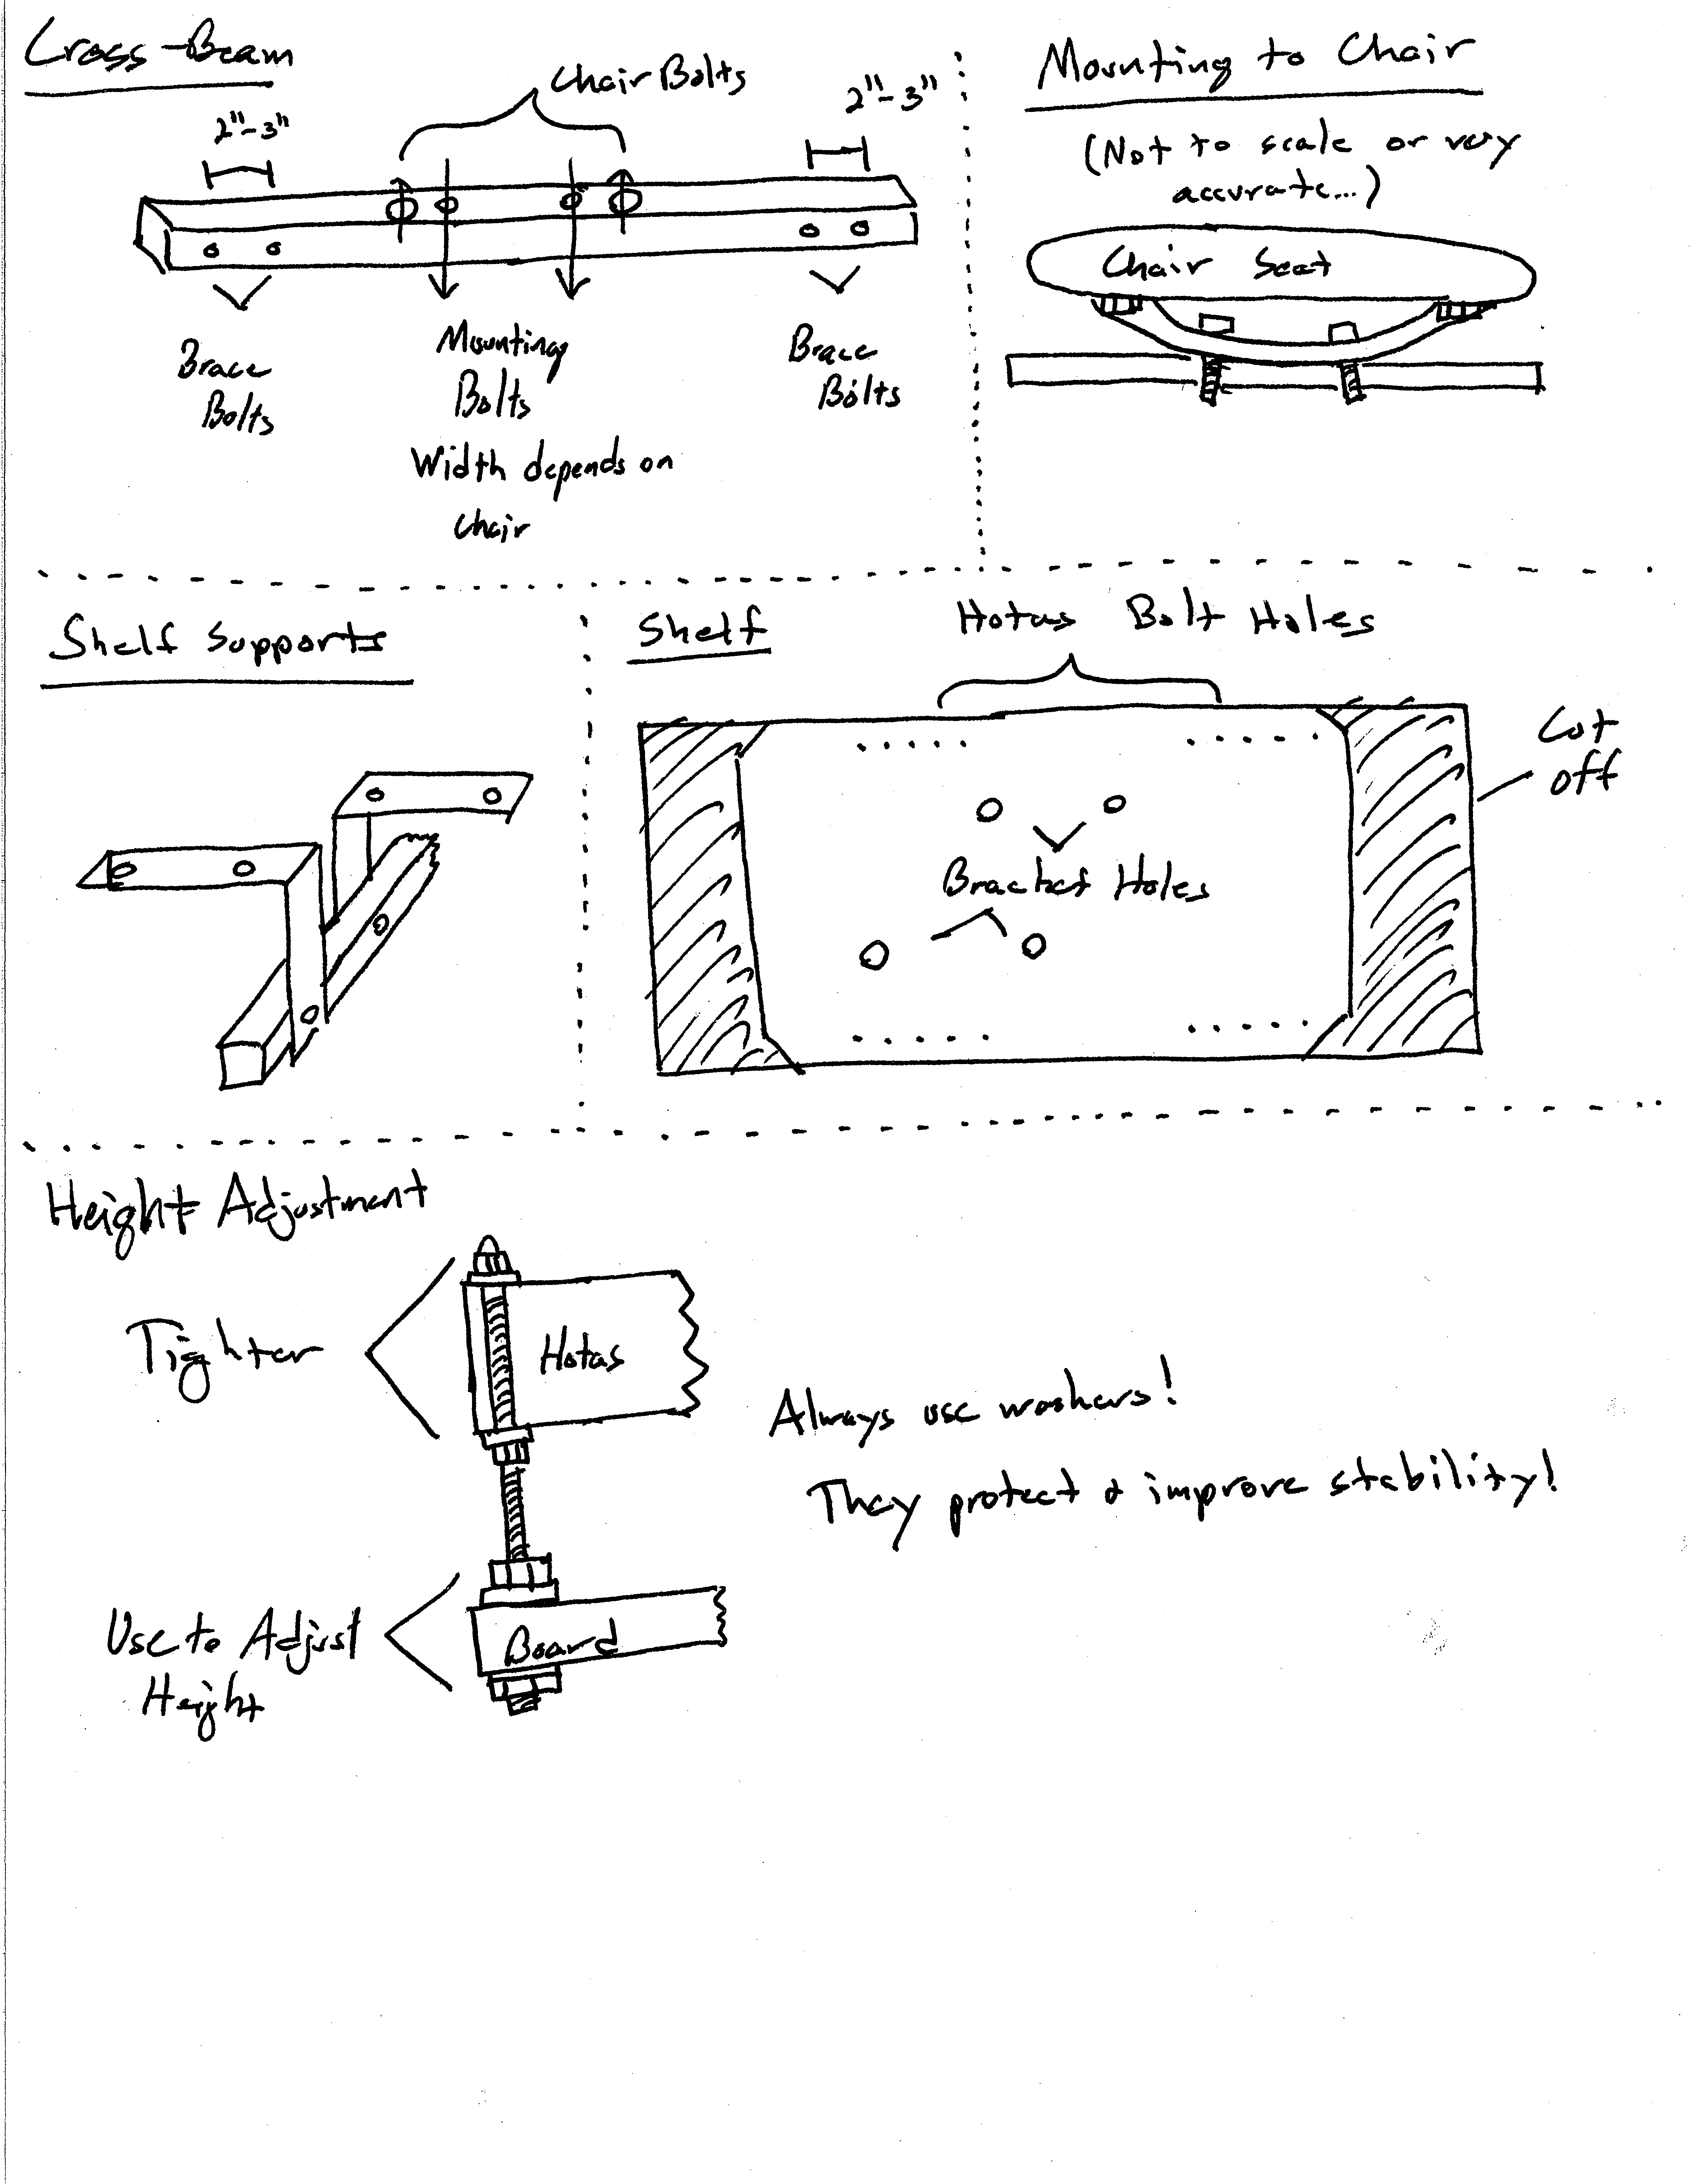 Cross-Beam
Chair Bolts
2"-3"
2"-3"
Brace
Bolts
Mounting
Bolts
Width depends on
Chair
Brace
Bolts
Mounting to Chair
(Not to scale or very
accurate...)
Chair Seat
Shelf Supports
Shelf
Hotas Bolt Holes
Cut
off
Bracket Holes
Height Adjustment
Tighter
Hotas
Always use washers!
They protect & improve stability!
Use to Adjust
Height
Board